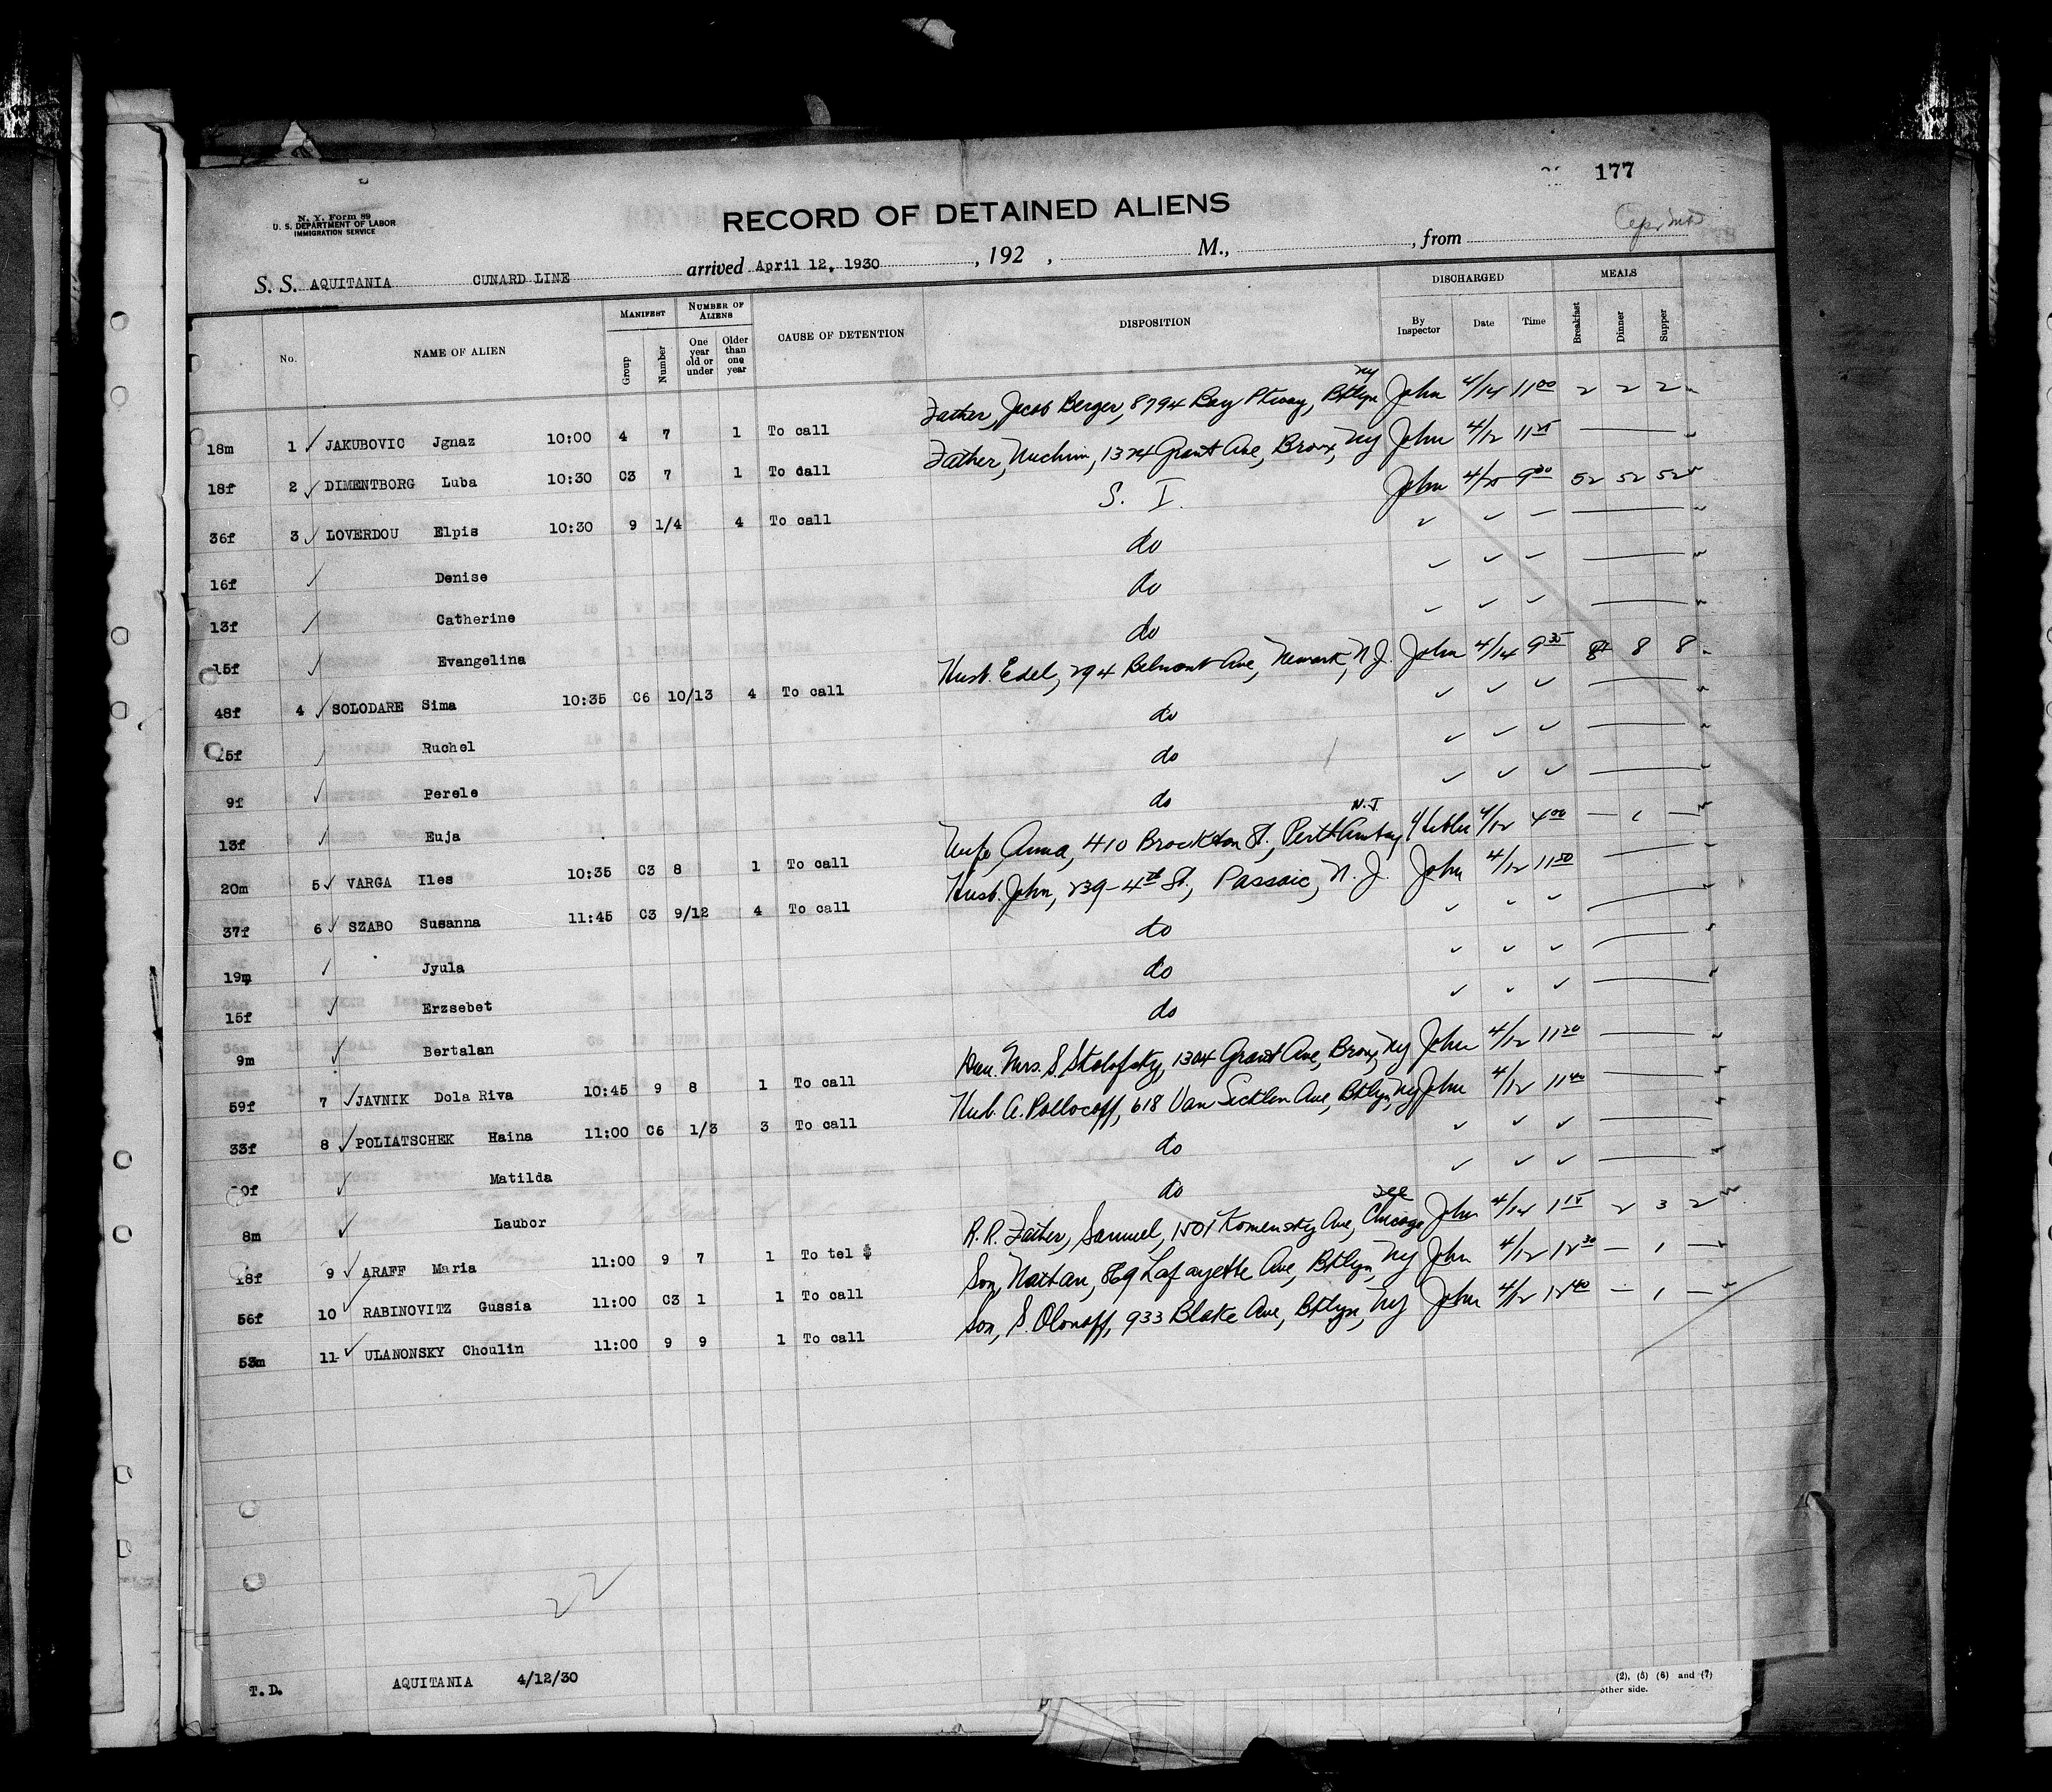 177
N. Y. Form 89
U. S. DEPARTMENT OF LABOR
IMMIGRATION SERVICE
RECORD OF DETAINED ALIENS
S. S. AQUITANIA CUNARD LINE arrived April 12, 1930, 192 , M., , from
No. NAME OF ALIEN MANIFEST Group Number NUMBER OF ALIENS One year old or under Older than one year CAUSE OF DETENTION DISPOSITION DISCHARGED By Inspector Date Time MEALS Breakfast Dinner Supper
18m 1 ✓ JAKUBOVIC Jgnaz 10:00 4 7 1 To call Father, Jacob Berger, 8794 Bay Pkway, Bklyn NY John 4/14 11 00 2 2 2
18f 2 ✓ DIMENTBORG Luba 10:30 C3 7 1 To call Father, Nuchim, 1324 Grant Ave, Bronx, NY John 4/12 11 25 —
36f 3 ✓ LOVERDOU Elpis 10:30 9 1/4 4 To call S. I. John 4/25 9 30 52 52 52
16f ✓ Denise do ✓ ✓ — —
13f ✓ Catherine do ✓ ✓ ✓ —
15f ✓ Evangelina do ✓ ✓ ✓ —
48f 4 ✓ SOLODARE Sima 10:35 C6 10/13 4 To call Husb. Edel, 294 Belmont Ave, Newark, N.J. John 4/14 9 35 8 8 8
15f ✓ Ruchel do ✓ ✓ ✓ —
9f ✓ Perele do ✓ ✓ ✓ —
13f ✓ Euja do ✓ ✓ ✓ —
20m 5 ✓ VARGA Iles 10:35 C3 8 1 To call Wife, Anna, 410 Brockton St., Perth Amboy N.J. 4/12 4 00 — 1 —
37f 6 ✓ SZABO Susanna 11:45 C3 9/12 4 To call Husb. John, 239-4th St., Passaic, N. J. John 4/12 11 50 —
19m ✓ Jyula do ✓ ✓ ✓ —
15f ✓ Erzsebet do ✓ ✓ ✓ —
9m ✓ Bertalan do ✓ ✓ ✓ —
59f 7 ✓ JAVNIK Dola Riva 10:45 9 8 1 To call Dau. Mrs. S. Stolofsky, 1304 Grant Ave, Bronx, NY John 4/12 11 20 —
33f 8 ✓ POLIATSCHEK Haina 11:00 C6 1/3 3 To call Husb. A. Pollocoff, 618 Van Sicklen Ave, Bklyn, NY John 4/12 11 40 —
10f ✓ Matilda do ✓ ✓ ✓ —
8m ✓ Laubor do ✓ ✓ ✓ —
18f 9 ✓ ARAFF Maria 11:00 9 7 1 To tel $ R.R. Father, Samuel, 1501 Komensky Ave, Chicago Ill John 4/14 1 15 2 3 2
56f 10 ✓ RABINOVITZ Gussia 11:00 C3 1 1 To call Son, Nathan, 869 Lafayette Ave, Bklyn, NY John 4/12 12 30 — 1 —
53m 11 ✓ ULANONSKY Choulin 11:00 9 9 1 To call Son, S. Olonoff, 933 Blake Ave, Bklyn, NY John 4/12 12 40 — 1 —
22
T.D. AQUITANIA 4/12/30
(2), (5) (6) and (7)
other side.